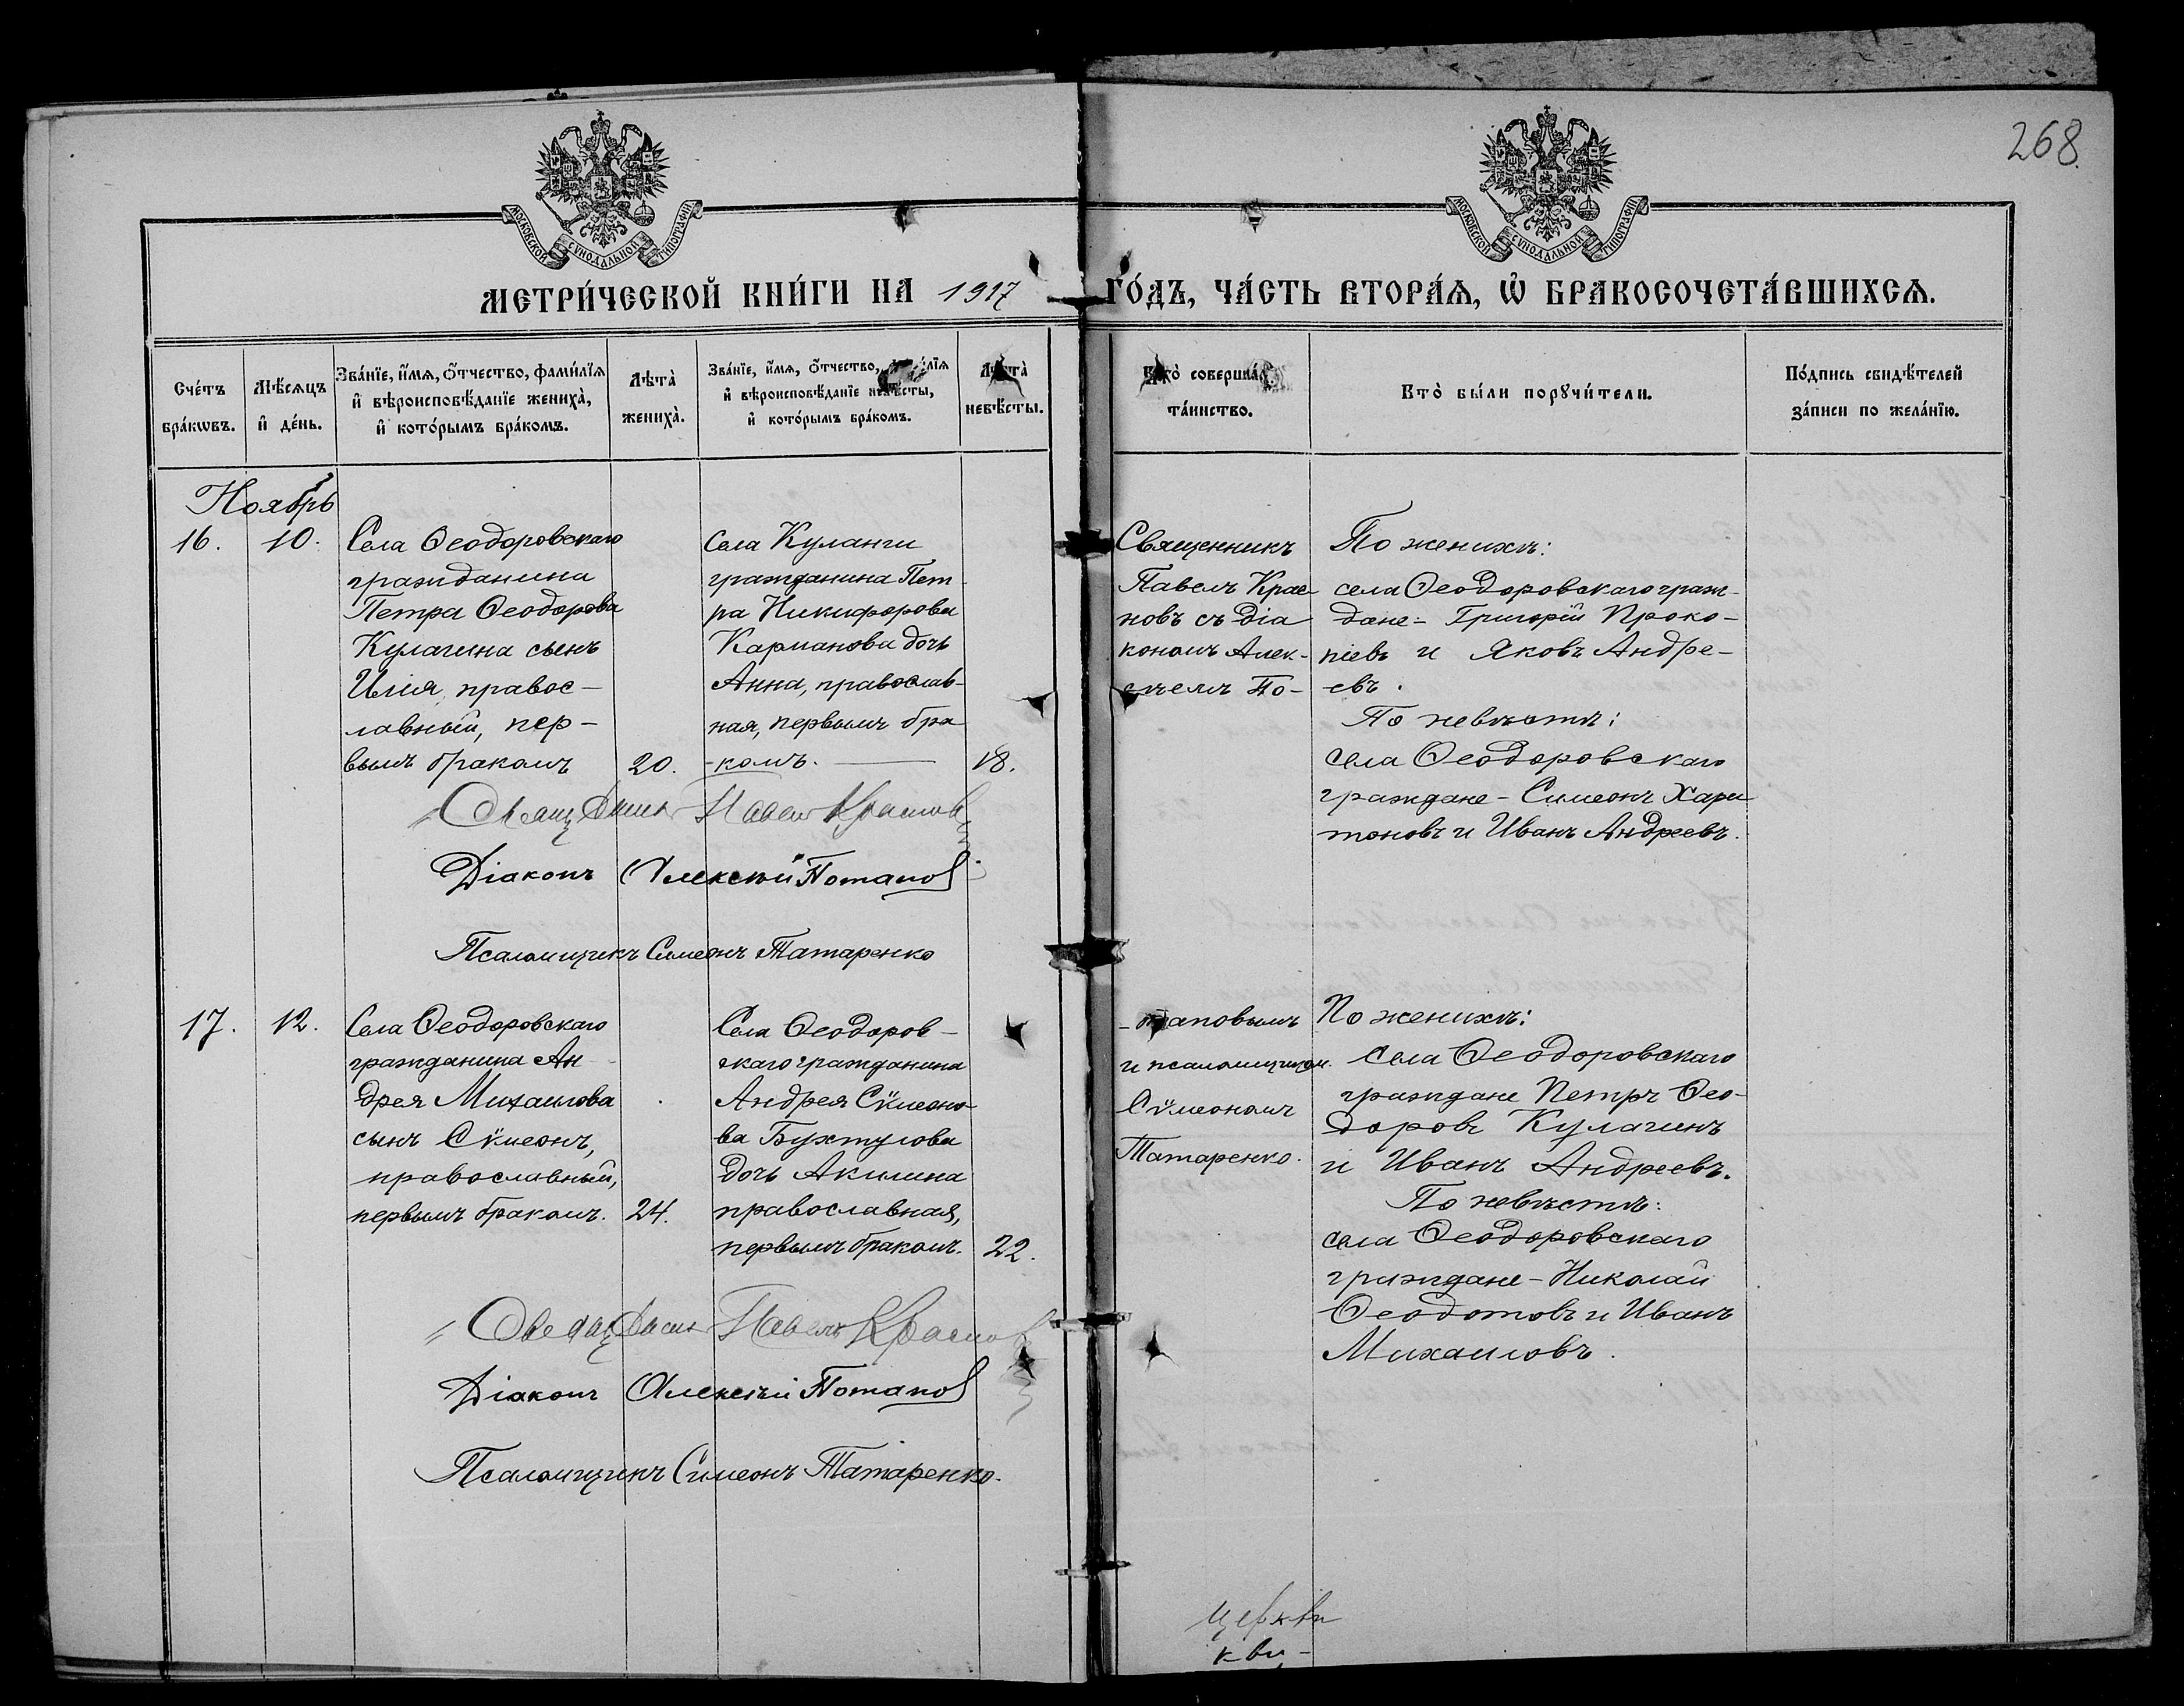 268.
МОСКОВСКОЙ СѴНОДАЛЬНОЙ ТИПОГРАФІИ
МОСКОВСКОЙ СѴНОДАЛЬНОЙ ТИПОГРАФІИ
МЕТРИ́ЧЕСКОЙ КНИ́ГИ НА 1917 ГО́ДЪ, ЧА́СТЬ ВТОРА́Ѧ, Ѽ БРАКОСОЧЕТА́ВШИХСѦ.
Сче́тъ
бра́кѡвъ.
Мѣ́сѧцъ
и҆ де́нь.
Зва́нїе, и҆́мѧ, о҆́тчество, фами́лїѧ
и҆ вѣроисповѣ́данїе жениха̀,
и҆ кото́рымъ бра́комъ.
Лѣта̀
жениха̀.
Зва́нїе, и҆́мѧ, о҆́тчество,
и҆ вѣроисповѣ́данїе невѣ́сты,
и҆ кото́рымъ бра́комъ.
Лѣта̀
невѣ́сты.
Кто̀ соверша́лъ
та́инство.
Кто̀ бы́ли порꙋчи́тели.
По́дпись свидѣ́телей
за́писи по жела́нїю.
Ноябрь
16.
10.
Села Ѳеодоровскаго
гражданина
Петра Ѳеодорова
Кулагина сынъ
Илія, правос-
лавный, пер-
вымъ бракомъ
20.
села Куланги
гражданина Пет-
ра Никифорова
Карманова дочь
Анна, православ-
ная, первымъ бра
-комъ.
18.
Священникъ
Павелъ Крас-
новъ съ Діа
кономъ Алек-
сѣемъ По-
По женихѣ:
села Ѳеодоровскаго граж-
дане:- Григорій Проко-
піевъ и Яковъ Андре-
евъ.
По невѣстѣ:
села Ѳеодоровскаго
граждане - Симеонъ Хари
тоновъ и Иванъ Андреевъ.
Священникъ Павелъ Красновъ
Діаконъ Алексѣй Потапов
Псаломщикъ Симеонъ Татаренко
17.
12.
Села Ѳеодоровскаго
гражданина Ан-
дрея Михаилова
сынъ Сѷмеонъ,
православный,
первымъ бракомъ.
24.
Села Ѳеодоров-
скаго гражданина
Андрея Сѷмеоно-
ва Бухтулова
дочь Акилина
православная,
первымъ бракомъ.
22.
-таповымъ
и псаломщиком.
Сѷмеономъ
Татаренко.
По женихѣ:
села Ѳеодоровскаго
граждане Петръ Ѳео-
доровъ Кулагинъ
и Иванъ Андреевъ.
По невѣстѣ:
села Ѳеодоровскаго
граждане - Николай
Ѳеодотовъ и Иванъ
Михаиловъ.
Священникъ Павелъ Красновъ
Діаконъ Алексѣй Потапов
Псаломщикъ Симеонъ Татаренко.
церкви
кви-